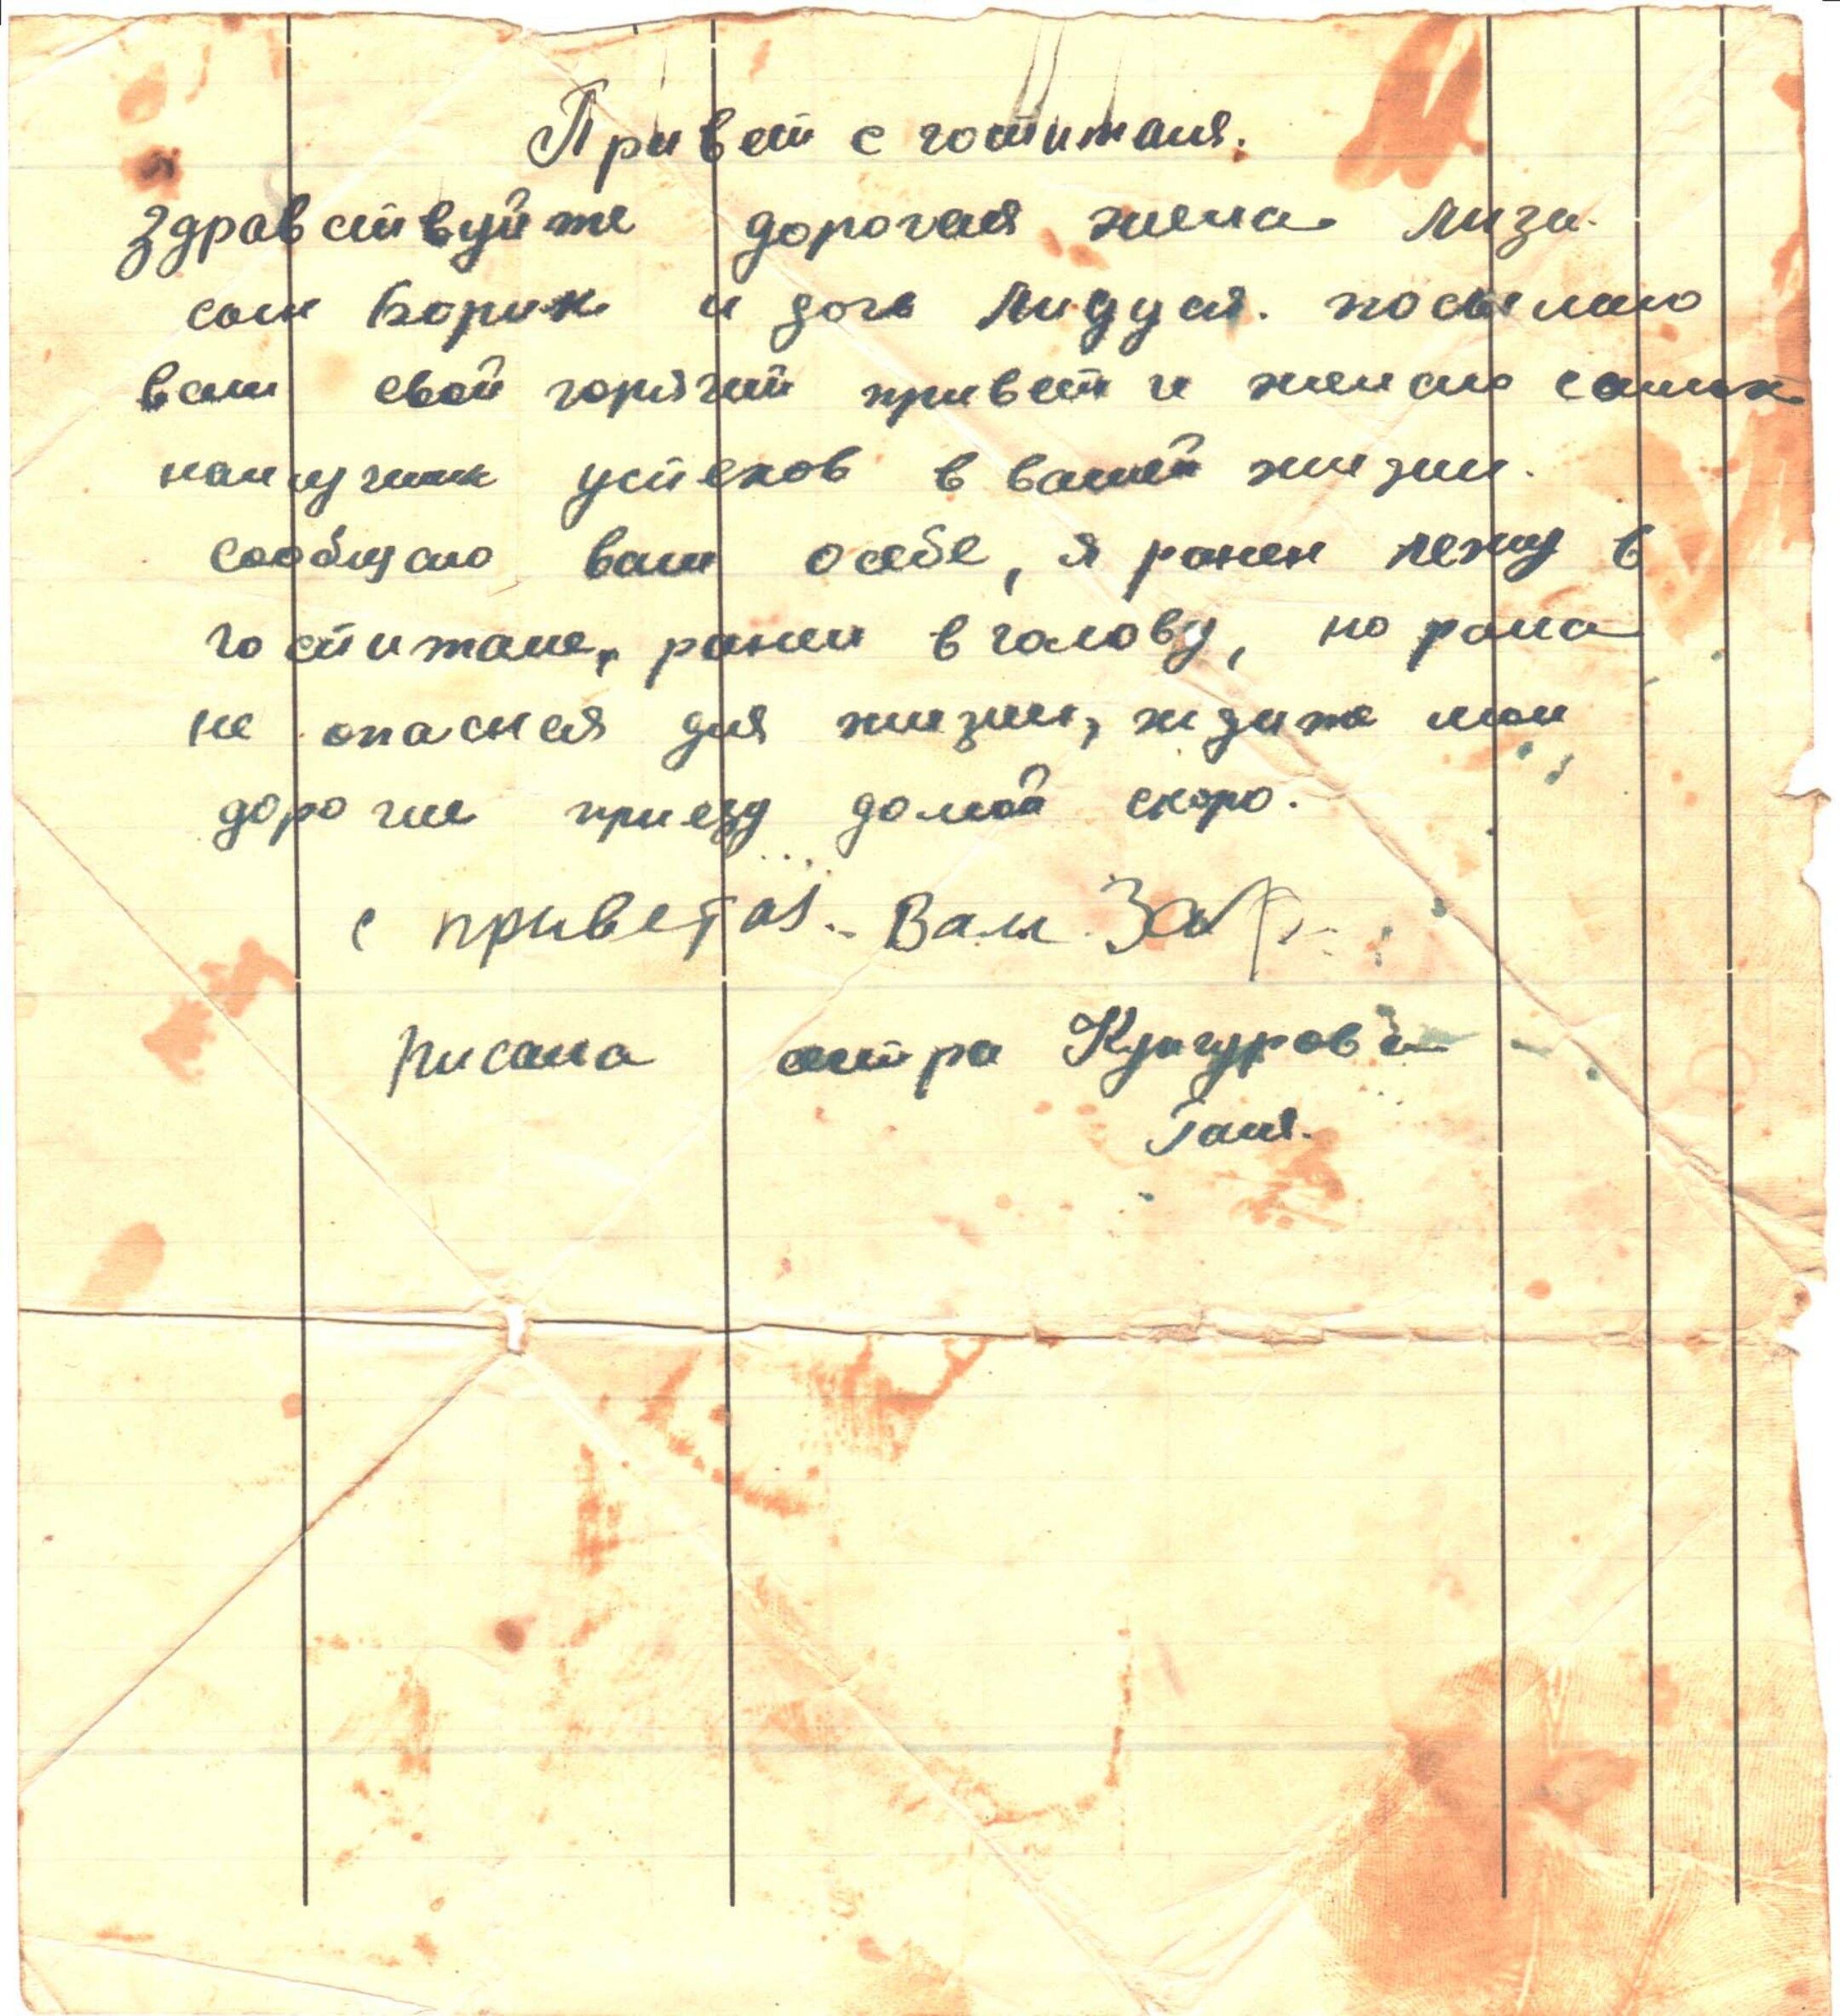 Привет с госпиталя.
Здравствуйте дорогая жена Лиза.
сын Борик и дочь Лидуся. посылаю
вам свой горячий привет и желаю самых
наилучших успехов в вашей жизни.
сообщаю вам о себе, я ранен лежу в
госпитале, ранен в голову, но рана
не опасная для жизни, ждите мои
дорогие приезд домой скоро.
с приветом. Вам
Писала сестра Кунгурова
Таня.